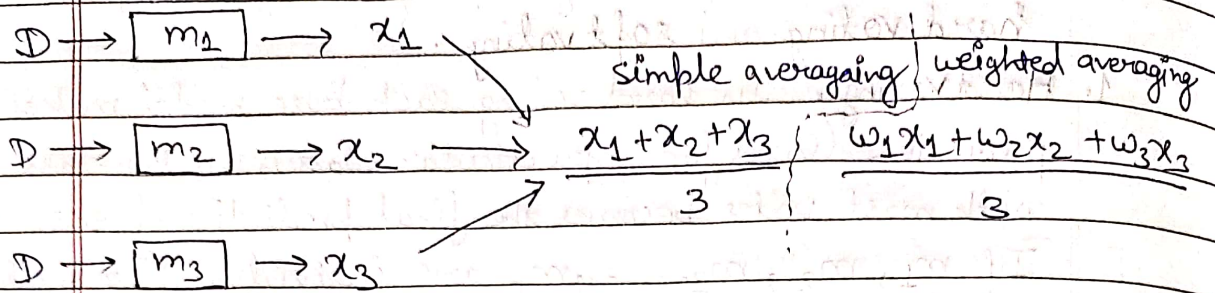 D → m1 → x1
simple averagaing weighted averaging
D → m2 → x2 → x1 + x2 + x3 / 3 w1x1 + w2x2 + w3x3 / 3
D → m3 → x3